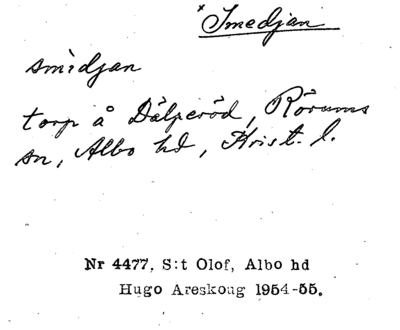 × Smedjan
smidjan
torp å Dälperöd, Rörums
sn, Albo hd, Krist. l.
Nr 4477, S:t Olof, Albo hd
Hugo Areskoug 1954-55.